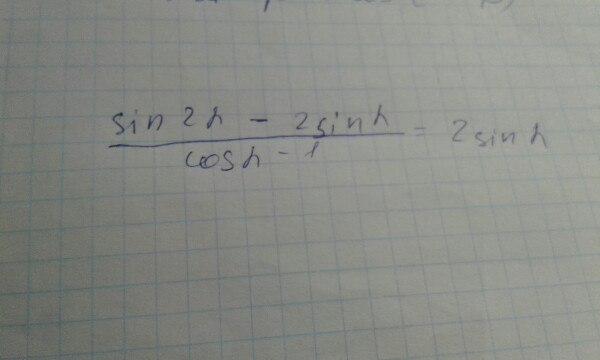 sin 2α - 2sinα
cosα - 1
= 2sinα